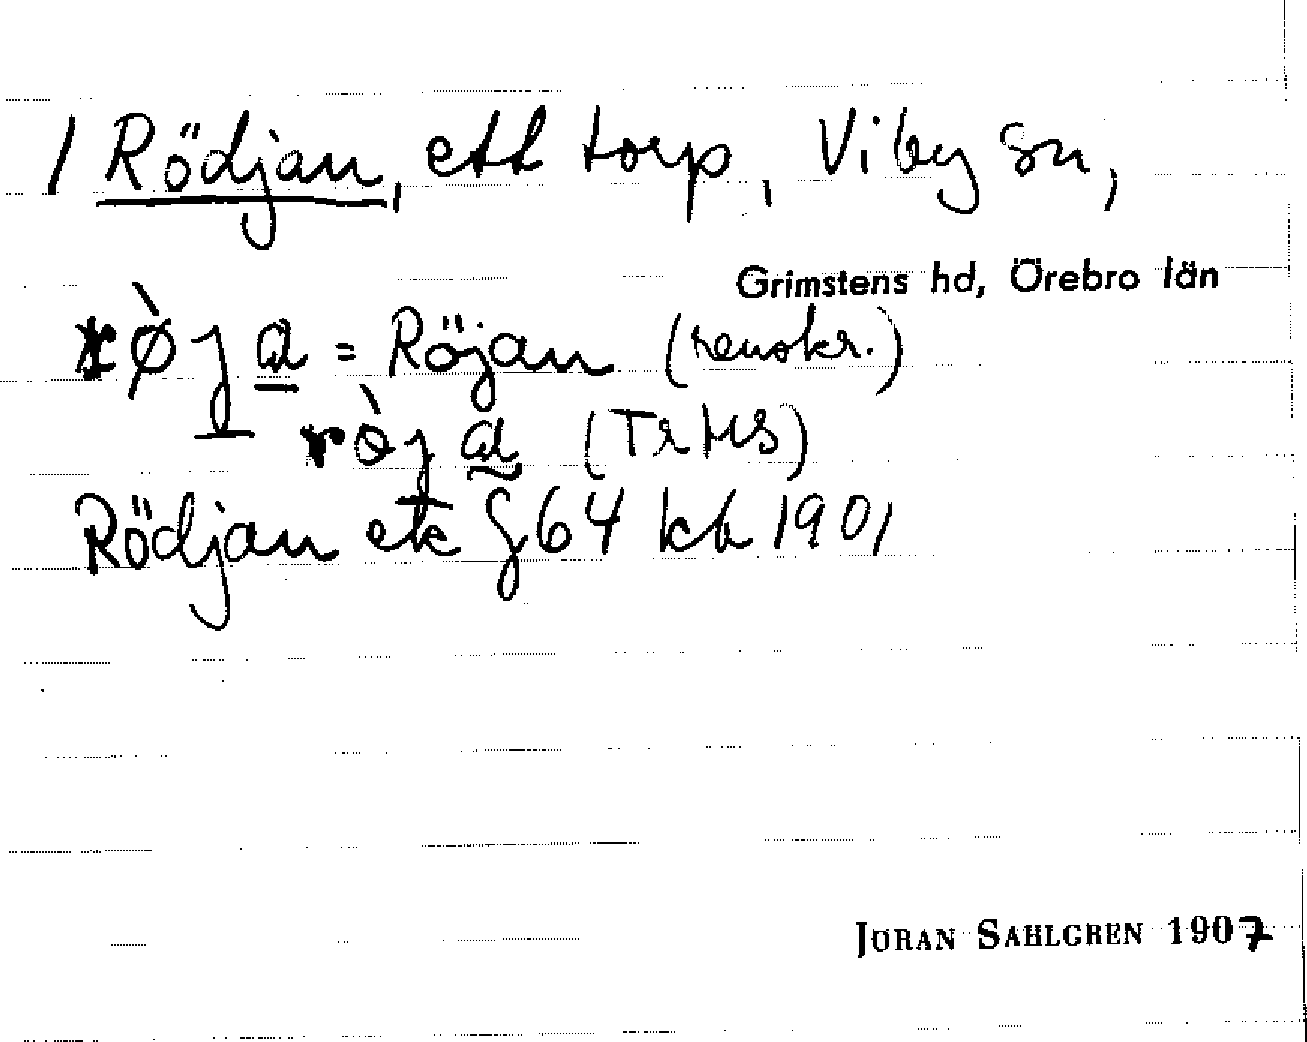 / Rödjan, ett torp, Viby sn,
Grimstens hd, Örebro län
rø̀ja = Röjan (renskr.)
rø̀ja (Tr HS)
Rödjan etc § 64 kb 1901
JÖRAN SAHLGREN 1907